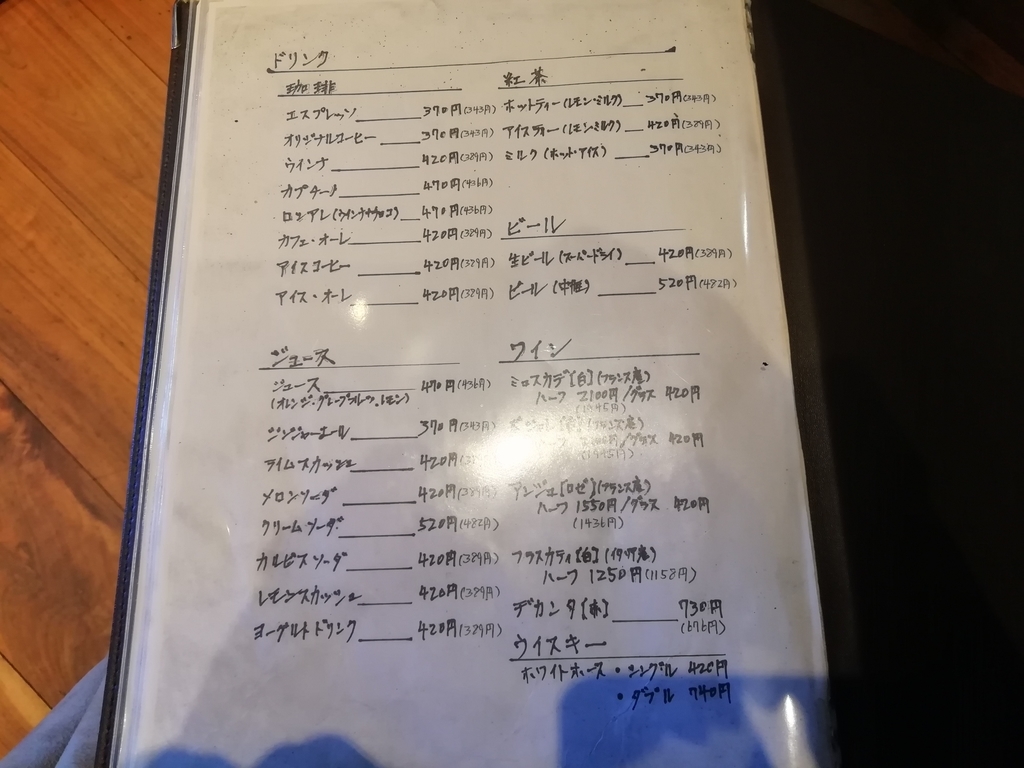 ドリンク
珈琲
エスプレッソ 370円(343円)
オリジナルコーヒー 370円(343円)
ウインナ 420円(389円)
カプチーノ 470円(436円)
ロシアン(ウインナチョコ) 470円(436円)
カフェ・オーレ 420円(389円)
アイスコーヒー 420円(389円)
アイス・オーレ 420円(389円)
ジュース
ジュース 470円(436円)
(オレンジ・グレープフルーツ・レモン)
ジンジャーエール 370円(343円)
ライムスカッシュ 420円
メロンソーダ 420円(389円)
クリームソーダ 520円(482円)
カルピスソーダ 420円(389円)
レモンスカッシュ 420円(389円)
ヨーグルトドリンク 420円(389円)
紅茶
ホットティー(レモン・ミルク) 370円(343円)
アイスティー(レモン・ミルク) 420円(389円)
ミルク(ホット・アイス) 370円(343円)
ビール
生ビール(スーパードライ) 420円(389円)
ビール(中瓶) 520円(482円)
ワイン
ミュスカデ[白](フランス産)
ハーフ 2100円/グラス 420円
(1945円)
(フランス産)
ハーフ 2100円/グラス 420円
(1945円)
アンジュ[ロゼ](フランス産)
ハーフ 1550円/グラス 420円
(1436円)
フラスカティ[白](イタリア産)
ハーフ 1250円(1158円)
デカンタ[赤] 730円
(676円)
ウイスキー
ホワイトホース・シングル 420円
・ダブル 740円